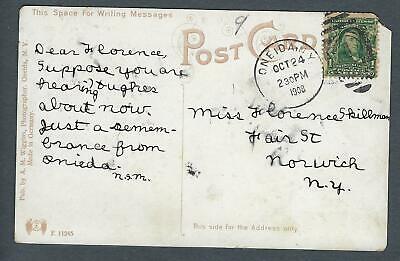 This Space for Writing Messages
9
POST CARD
Dear Florence,
Suppose you are
hearing Hughes
about now.
Just a remem-
brance from
Oneida.
N.S.M.
ONEIDA, N.Y.
OCT 24
230PM
1908
Miss Florence Skillman
Fair St
Norwich
N.Y.
Pub. by A. M. Wiggins, Photographer, Oneida, N. Y.
Made in Germany.
F. 11245
This side for the Address only